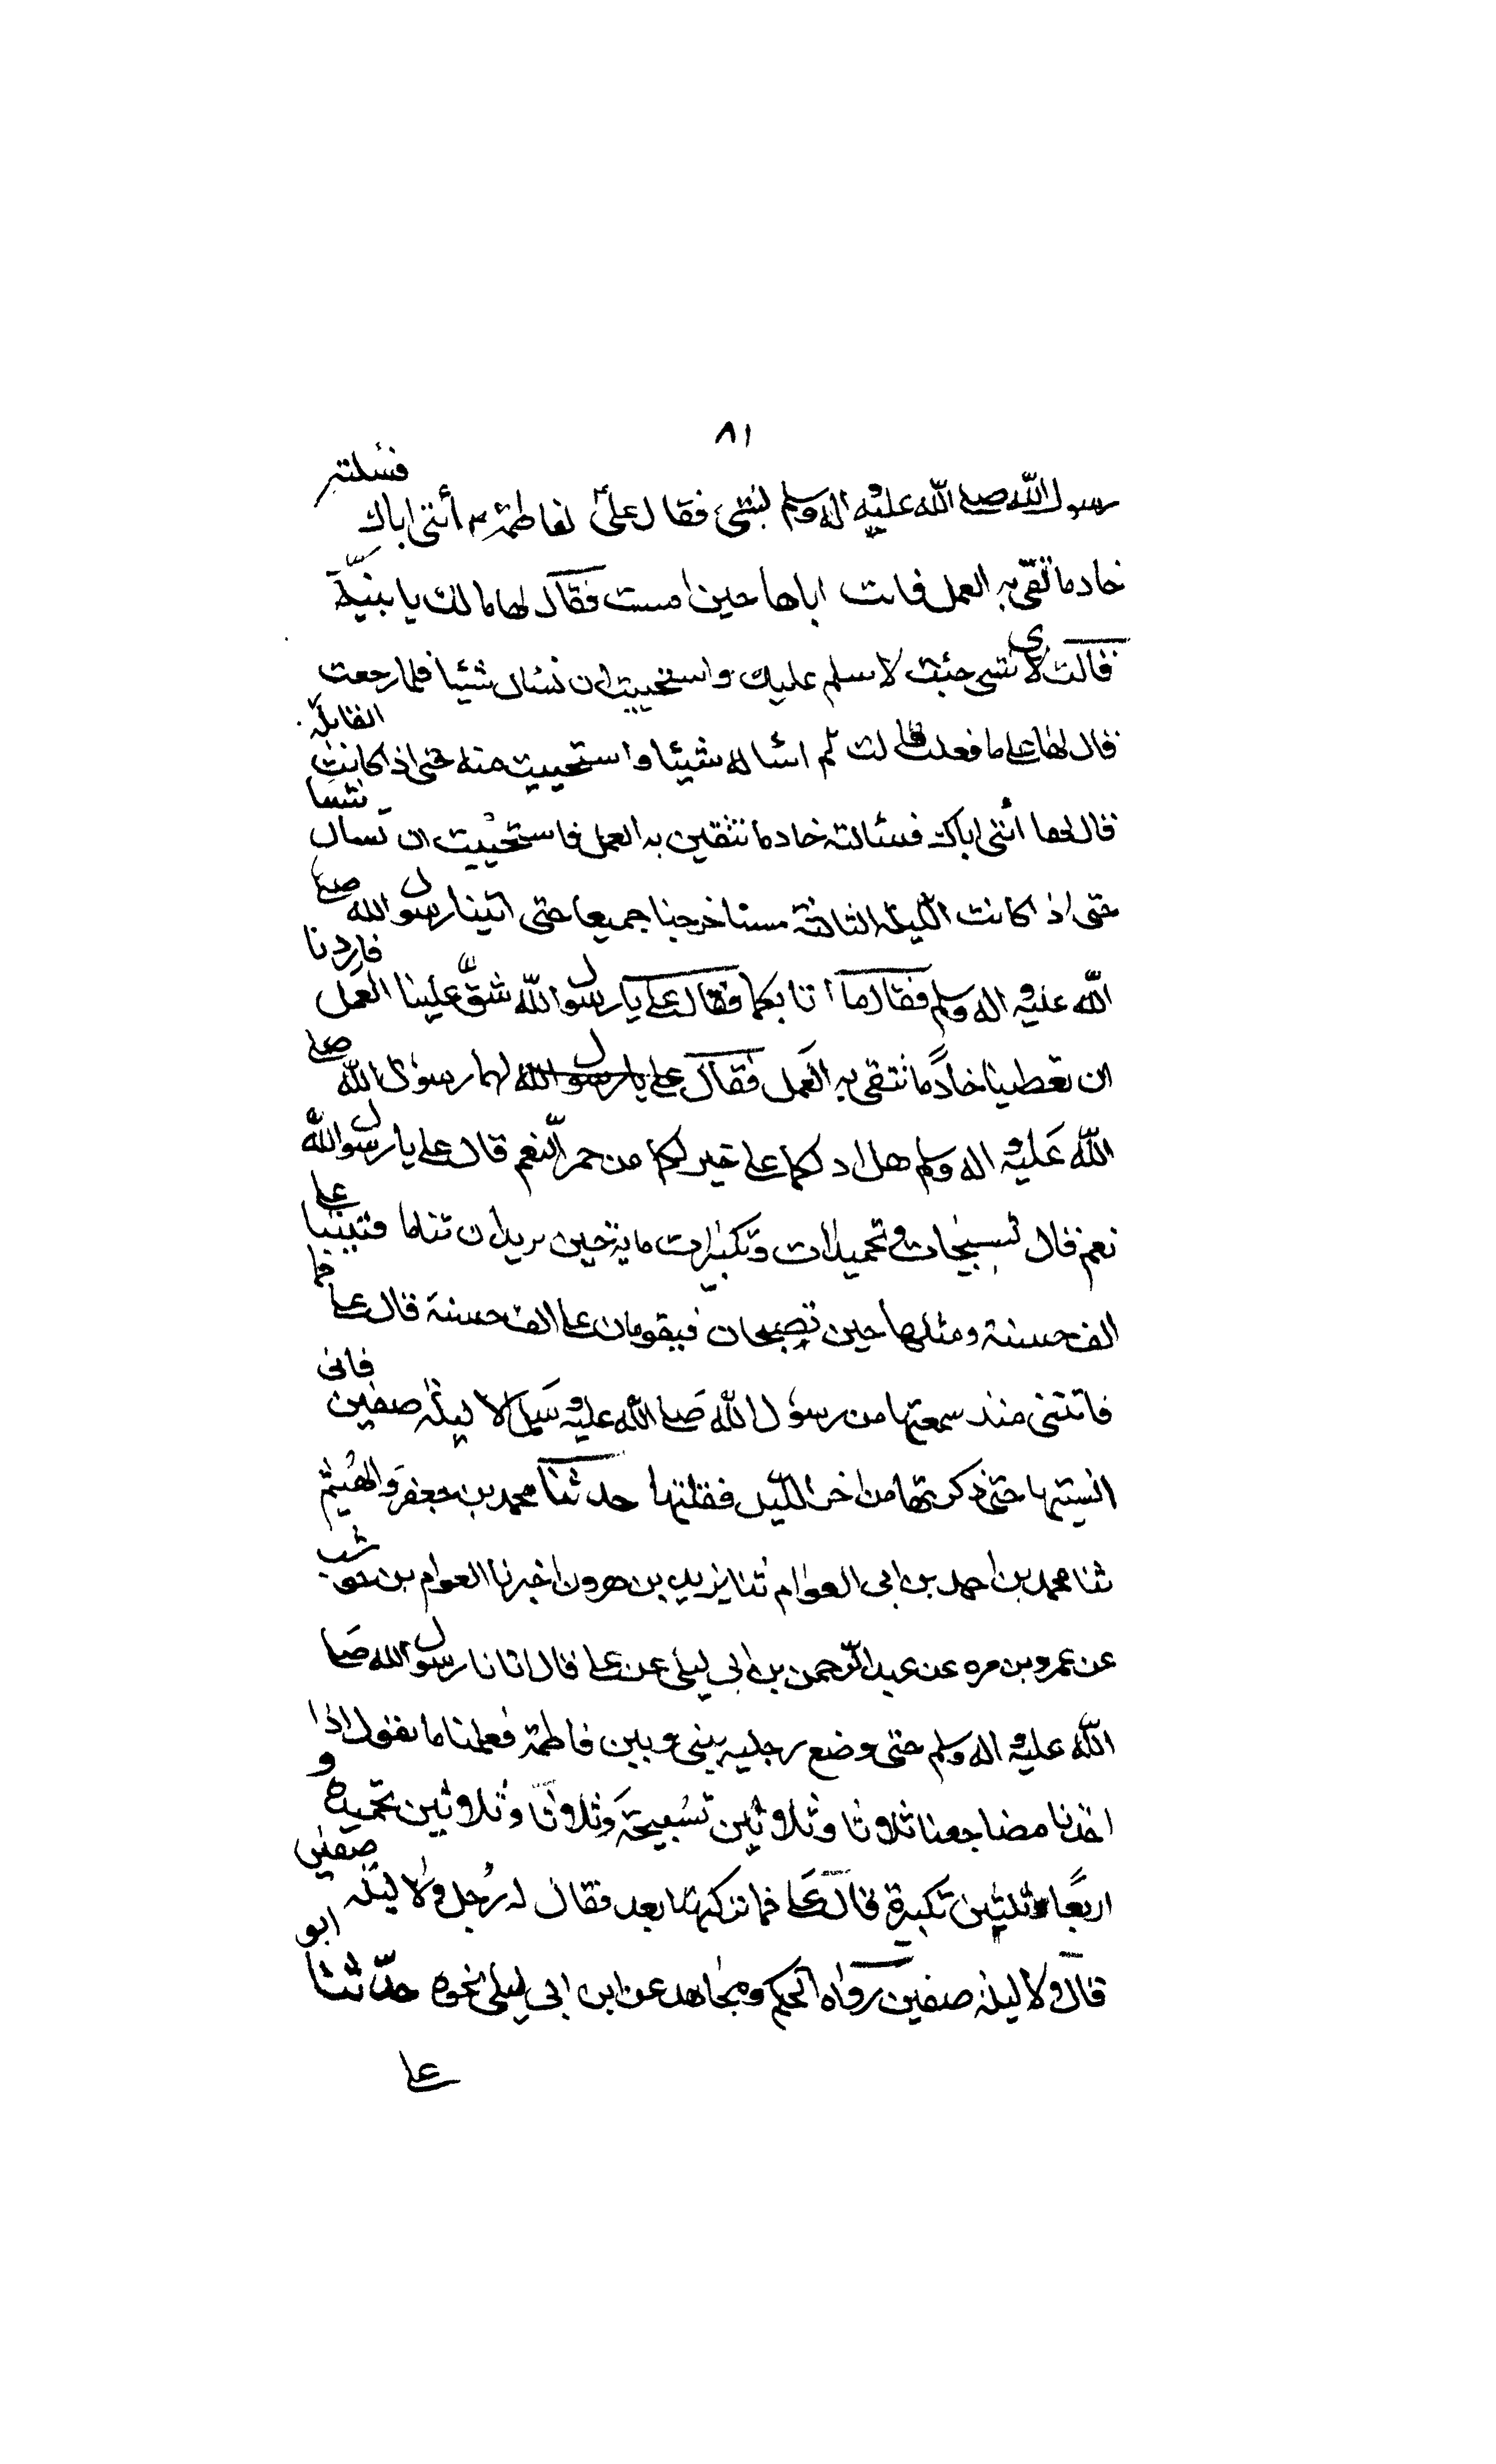 ٨١
رسول الله صلى الله عليه واله وسلم بشى فقال على لفاطمة أئتى اباك فسئلته
خادما تقى به العمل فاتت اباها حين امست فقال لها مالك يا بنية
قالت لا شى جئت لاسلم عليك واستحييت ان نسئال شيئا فلما رجعت
قال لها على ما فعلت قالت لم اسئاله شيئا واستحييت منه حتى اذ اكانت القابلة
قال لها أئتى اباك فسئالته خادما تتقين به العمل فاستحييت ان تسال شيئا
حتى اذ اكانت الليلة الثالثة مسنا خرجنا جميعا حتى اتينا رسول الله صلى
الله عليه اله وسلم فقال ما اتا بكما فقال على يا رسول الله شق علينا العمل فاردنا
ان تعطينا خادما نتقى به العمل فقال على يا رسول الله لهما رسول الله صلى
الله عليه اله وسلم هل ادلكما على خير لكما من حمر النعم قال على يا رسول الله
نعم قال تسبيحات وتحميدات وتكبيرات ماية حين تريدان تناما فتبيتا على
الف حسنة ومثلها حين تصبحان فيقومان على الف حسنة قال على فما
فاتتنى منذ سمعتها من رسول الله صلى الله عليه وسلم الا ليلة صفين فانى
انسيتها حتى ذكرتها من اخر الليل فقلتها حدثنا محمد بن جعفر والهيثم
ثنا محمد بن احمد بن ابى العوام ثنا يزيد بن هرون اخبرنا العوام بن حوشب
عن عمرو بن مره عن عبد الرحمن بن ابي ليلى عن على قال اتانا رسول الله صلى
الله عليه اله وسلم حتى وضع رجليه بينى وبين فاطمة فعلمنا ما نقول اذا
اخذنا مضاجعنا ثلاوثا وثلاوثين تسبيحة وثلاوثا وثلاوثين تحميدة و
اربعا وثلثين تكبيرة قال على فما تركتها بعد فقال له رجل ولا ليلة صفين
قال ولا ليلة صفين رواه الحكم ومجاهد عن ابن ابي ليلى نحوه حدثنا ابو
على